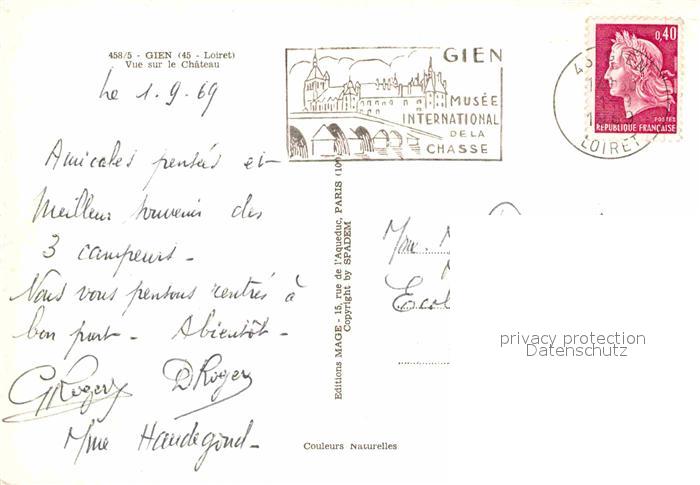 458/5 - GIEN (45 - Loiret)
Vue sur le Château
Le 1.9.69
Amicales pensées et
Meilleur souvenir des
3 campeurs -
Nous vous pensons rentrés à
bon port - Abientôt -
GRogery DRogery
Mme Handegond -
GIEN
MUSÉE
INTERNATIONAL
DE LA
CHASSE
0,40
POSTES
REPUBLIQUE FRANÇAISE
45 GIEN
LOIRET
Editions MAGE - 15, rue de l'Aqueduc, PARIS (10e)
Copyright by SPADEM
Mme.
Ecol
privacy protection
Datenschutz
Couleurs Naturelles